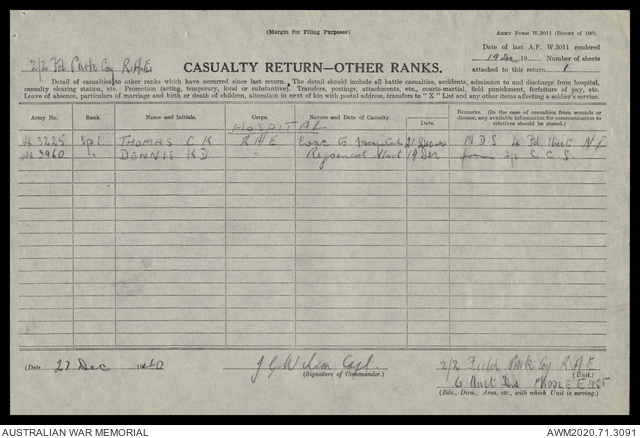 (Margin for Filing Purposes)
ARMY FORM W.3011 (BOOKS OF 100).
2/2 Fd Park Coy R.A.E
Date of last A.F. W.3011 rendered
19 Dec 19 Number of sheets
attached to this return 1
CASUALTY RETURN—OTHER RANKS.
Detail of casualties to other ranks which have occurred since last return. The detail should include all battle casualties, accidents, admission to and discharge from hospital, casualty clearing station, etc. Promotion (acting, temporary, local or substantive). Transfers, postings, attachments, etc., courts-martial, field punishment, forfeiture of pay, etc. Leave of absence, particulars of marriage and birth or death of children, alteration in next of kin with postal address, transfers to "X" List and any other items affecting a soldier's service.
Army No. Rank. Name and Initials. Corps. Nature and Date of Casualty. Date. Remarks. (In the case of casualties from wounds or disease, any available information for communication to relatives should be stated.)
HOSPITAL
3225 Spr THOMAS C K RAE Evac to Hospital 21 Dec MDS Fd
3460 " DENNIS K D " Rejoined Unit 19 Dec from 2/1 C C S
(Date 27 Dec 1940
J G Wilson Capt.
(Signature of Commander.)
2/2 Field Park Coy R A E
(Unit.)
6 Aust Div MIDDLE EAST
(Bde., Divn., Area, etc., with which Unit is serving.)
AUSTRALIAN WAR MEMORIAL
AWM2020.71.3091